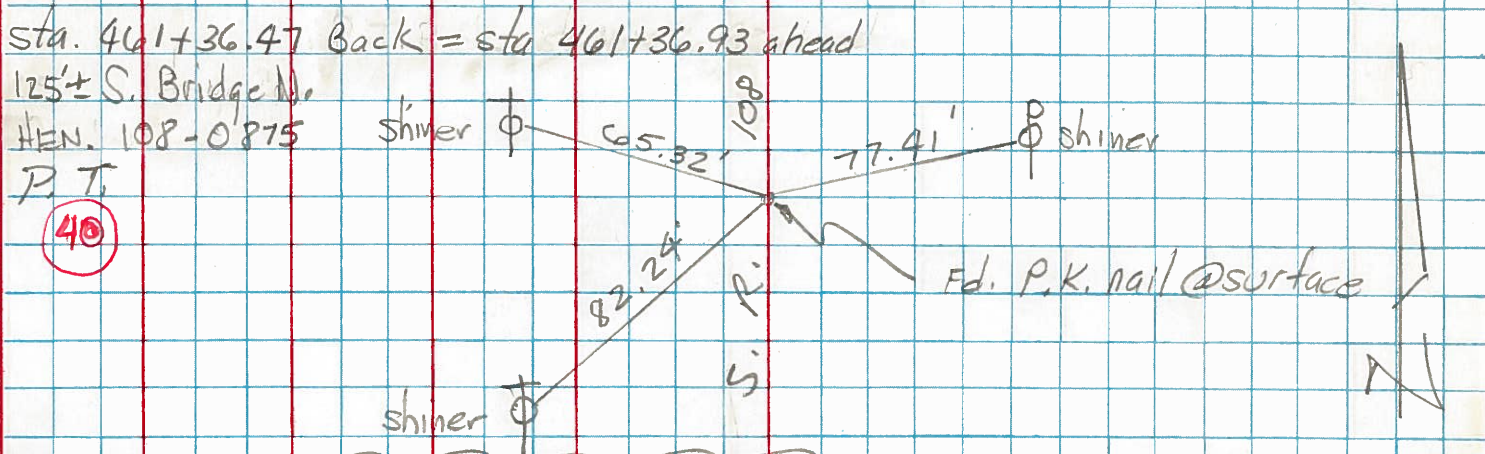 sta. 461+36.47 Back = sta 461+36.93 ahead
125'± S. Bridge N.
HEN. 108-0875
P. T.
40
shiner
65.32'
108
77.41'
shiner
82.24'
S. R.
Fd. P.K. nail @surface
shiner
N